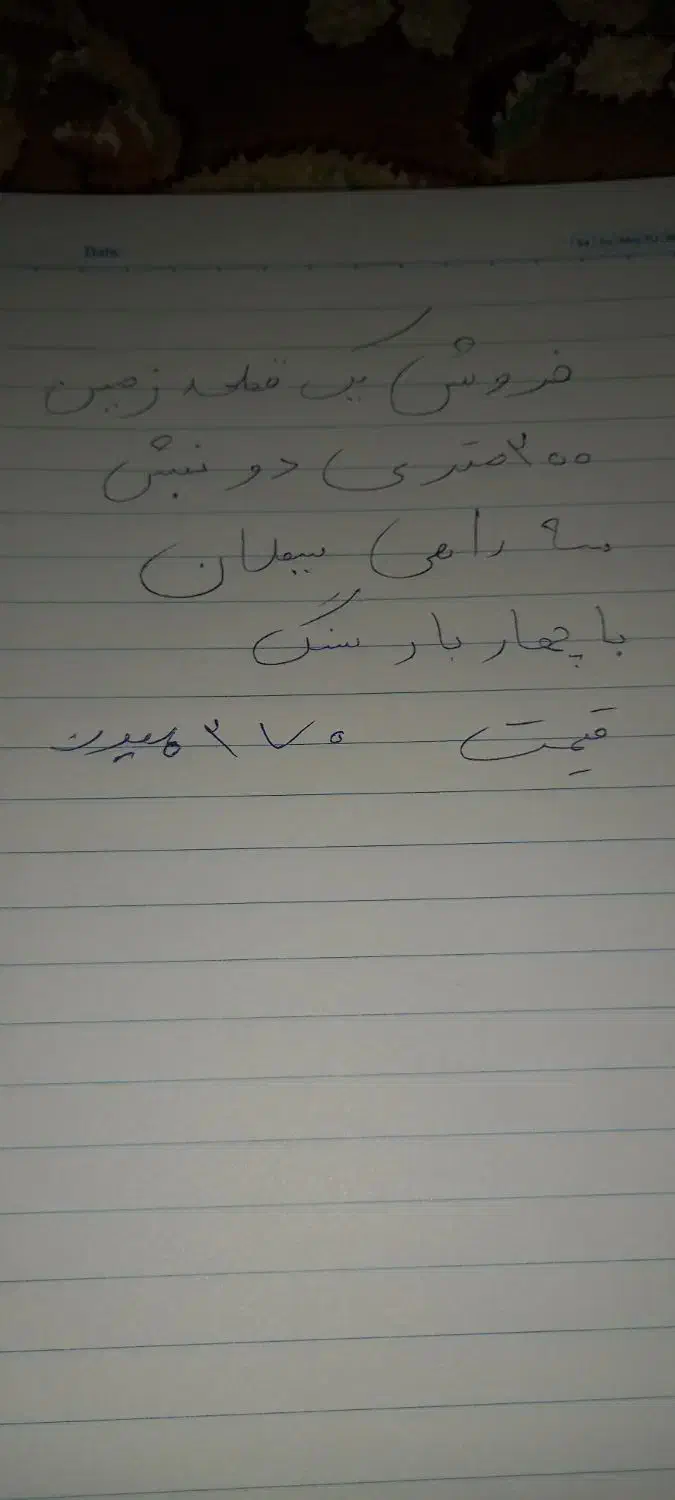 Date
فروش یک قطعه زمین
۲۰۰ متری دو نبش
سه راهی
با چهار بار سنگ
قیمت ۲۷۰ میلیون